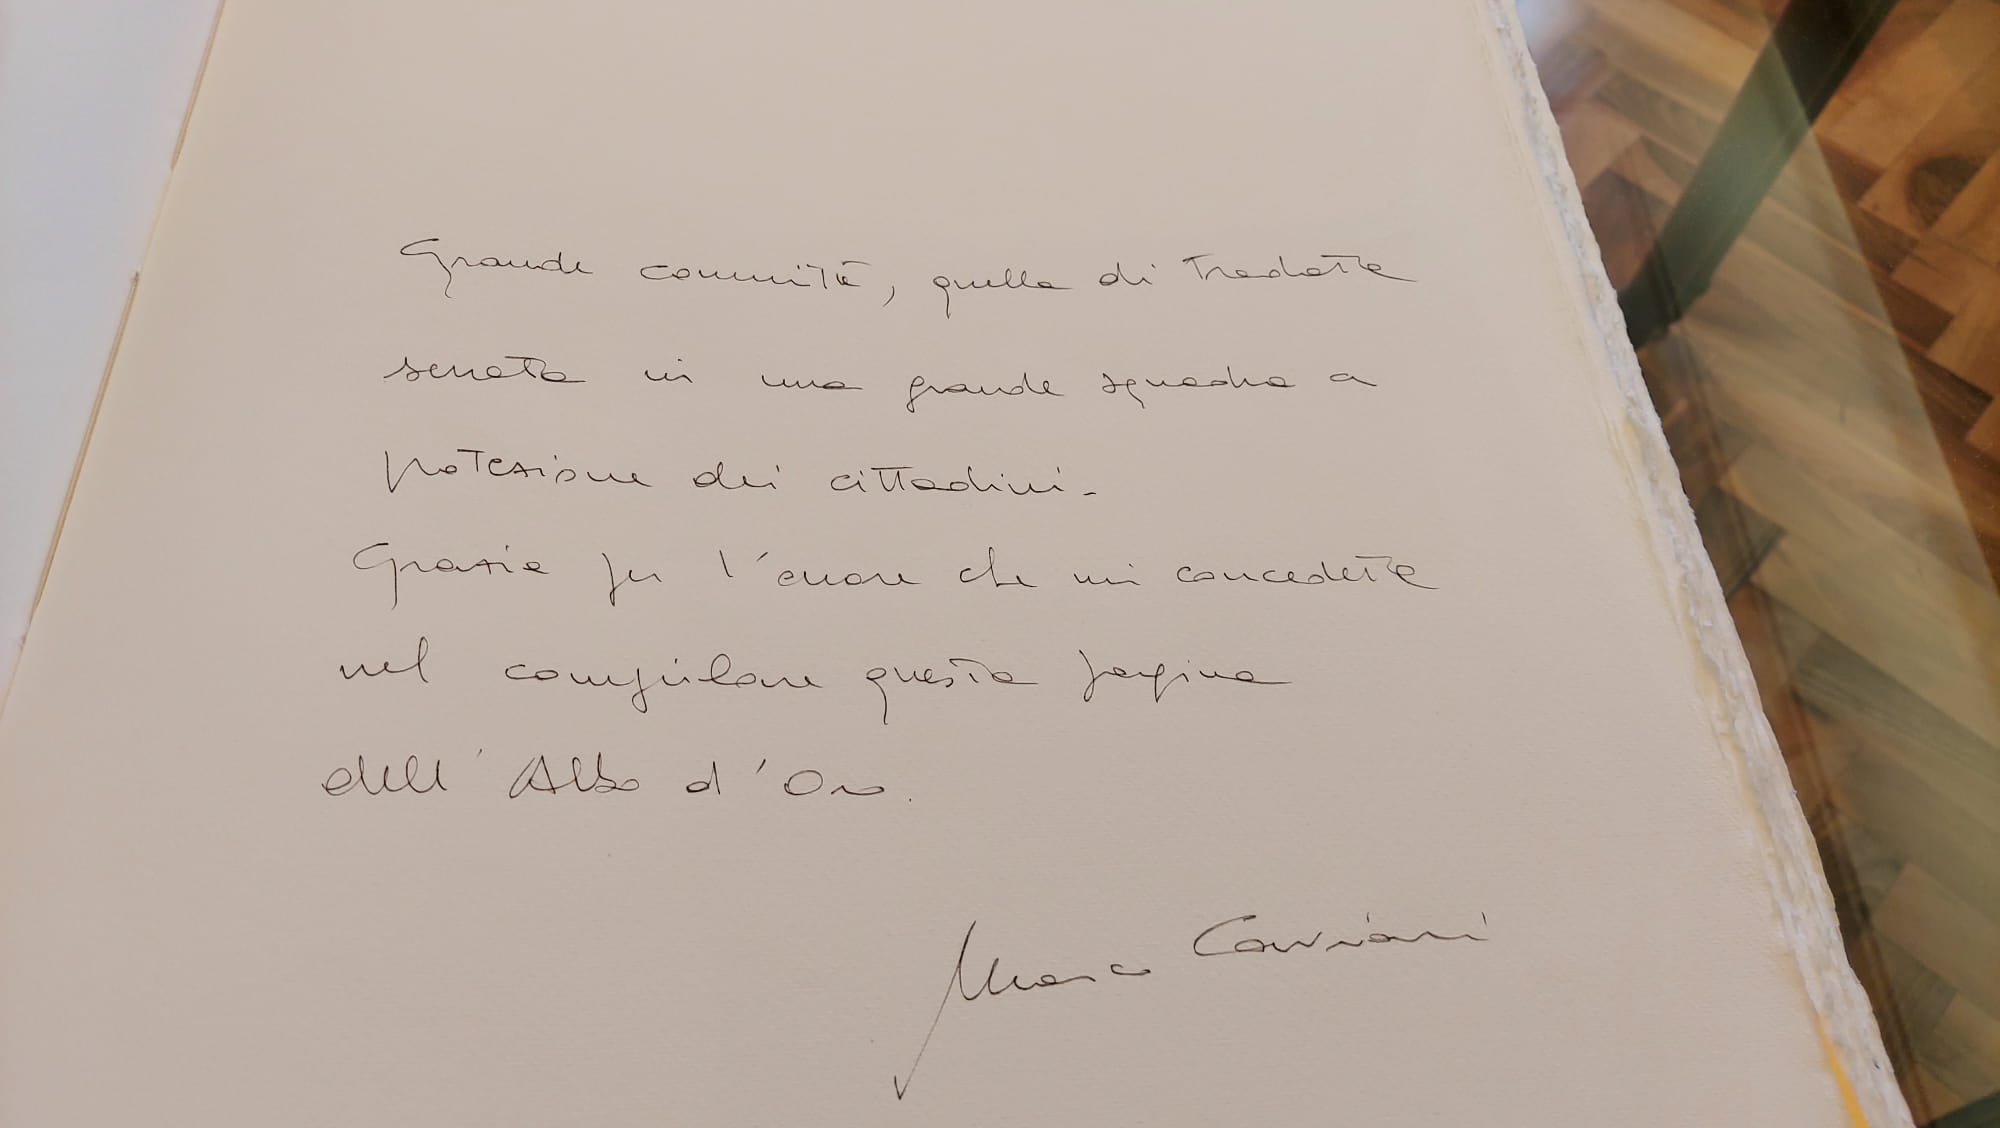 Grande comunità, quella di Tradate
serrata in una grande squadra a
protezione dei cittadini.
Grazie per l'onore che mi concedete
nel compilare questa pagina
dell'Albo d'Oro.
Marco Caviani